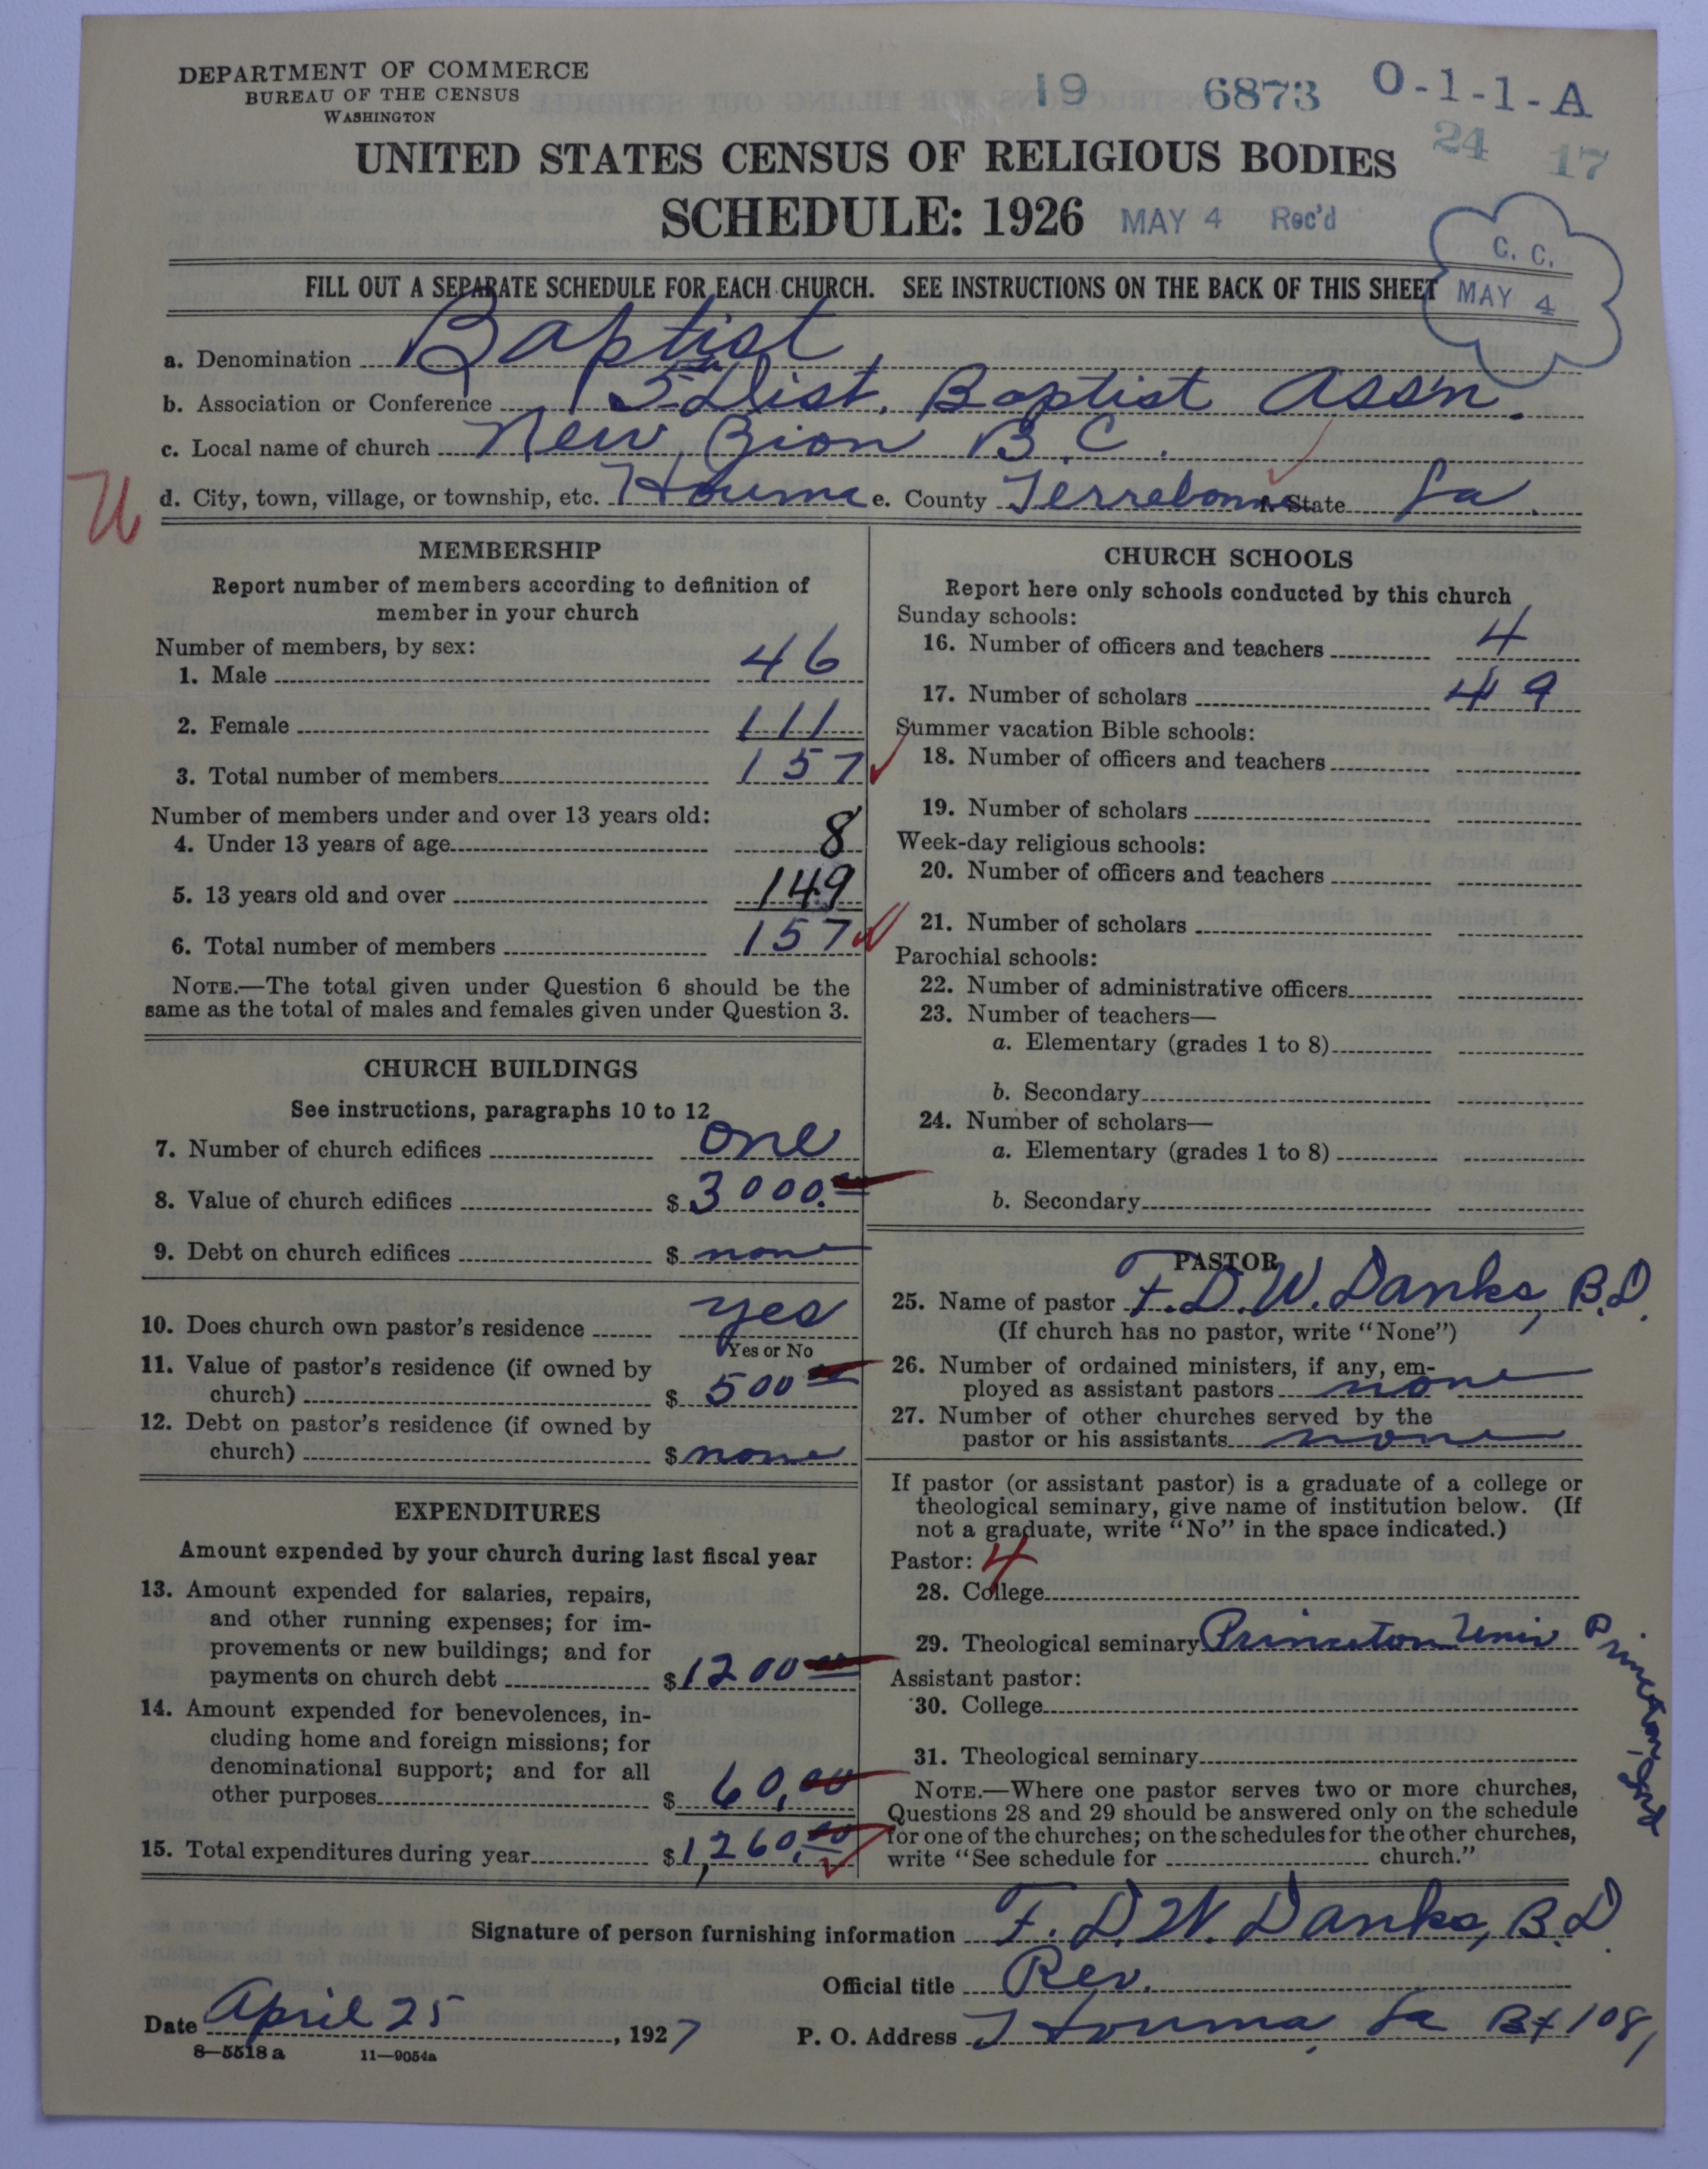 DEPARTMENT OF COMMERCE
BUREAU OF THE CENSUS
WASHINGTON
19 6873 O-1-1-A
24 17
UNITED STATES CENSUS OF RELIGIOUS BODIES
SCHEDULE: 1926 MAY 4 Rec'd
C. C.
MAY 4
FILL OUT A SEPARATE SCHEDULE FOR EACH CHURCH. SEE INSTRUCTIONS ON THE BACK OF THIS SHEET
a. Denomination Baptist
b. Association or Conference 5th Dist. Baptist Ass'n.
c. Local name of church New Zion B.C.
d. City, town, village, or township, etc. Houma e. County Terrebonne f. State La.
U
MEMBERSHIP
Report number of members according to definition of
member in your church
Number of members, by sex:
1. Male 46
2. Female 111
3. Total number of members 157
Number of members under and over 13 years old:
4. Under 13 years of age 8
5. 13 years old and over 149
6. Total number of members 157
NOTE.—The total given under Question 6 should be the
same as the total of males and females given under Question 3.
CHURCH BUILDINGS
See instructions, paragraphs 10 to 12
7. Number of church edifices one
8. Value of church edifices $ 3000.00
9. Debt on church edifices $ none
10. Does church own pastor's residence yes
Yes or No
11. Value of pastor's residence (if owned by
church) $ 500 00
12. Debt on pastor's residence (if owned by
church) $ none
EXPENDITURES
Amount expended by your church during last fiscal year
13. Amount expended for salaries, repairs,
and other running expenses; for im-
provements or new buildings; and for
payments on church debt $ 1200 00
14. Amount expended for benevolences, in-
cluding home and foreign missions; for
denominational support; and for all
other purposes $ 60,00
15. Total expenditures during year $ 1,260,00
CHURCH SCHOOLS
Report here only schools conducted by this church
Sunday schools:
16. Number of officers and teachers 4
17. Number of scholars 49
Summer vacation Bible schools:
18. Number of officers and teachers
19. Number of scholars
Week-day religious schools:
20. Number of officers and teachers
21. Number of scholars
Parochial schools:
22. Number of administrative officers
23. Number of teachers—
a. Elementary (grades 1 to 8)
b. Secondary
24. Number of scholars—
a. Elementary (grades 1 to 8)
b. Secondary
PASTOR
25. Name of pastor F. D. W. Danks, B.D.
(If church has no pastor, write "None")
26. Number of ordained ministers, if any, em-
ployed as assistant pastors none
27. Number of other churches served by the
pastor or his assistants none
If pastor (or assistant pastor) is a graduate of a college or
theological seminary, give name of institution below. (If
not a graduate, write "No" in the space indicated.)
Pastor: 4
28. College
29. Theological seminary Princeton Univ
Princeton, Ind
Assistant pastor:
30. College
31. Theological seminary
NOTE.—Where one pastor serves two or more churches,
Questions 28 and 29 should be answered only on the schedule
for one of the churches; on the schedules for the other churches,
write "See schedule for church."
Signature of person furnishing information F. D. W. Danks, B.D.
Official title Rev.
Date April 25, 1927 P. O. Address Houma, La Bx 108,
8—5518a 11—9054a